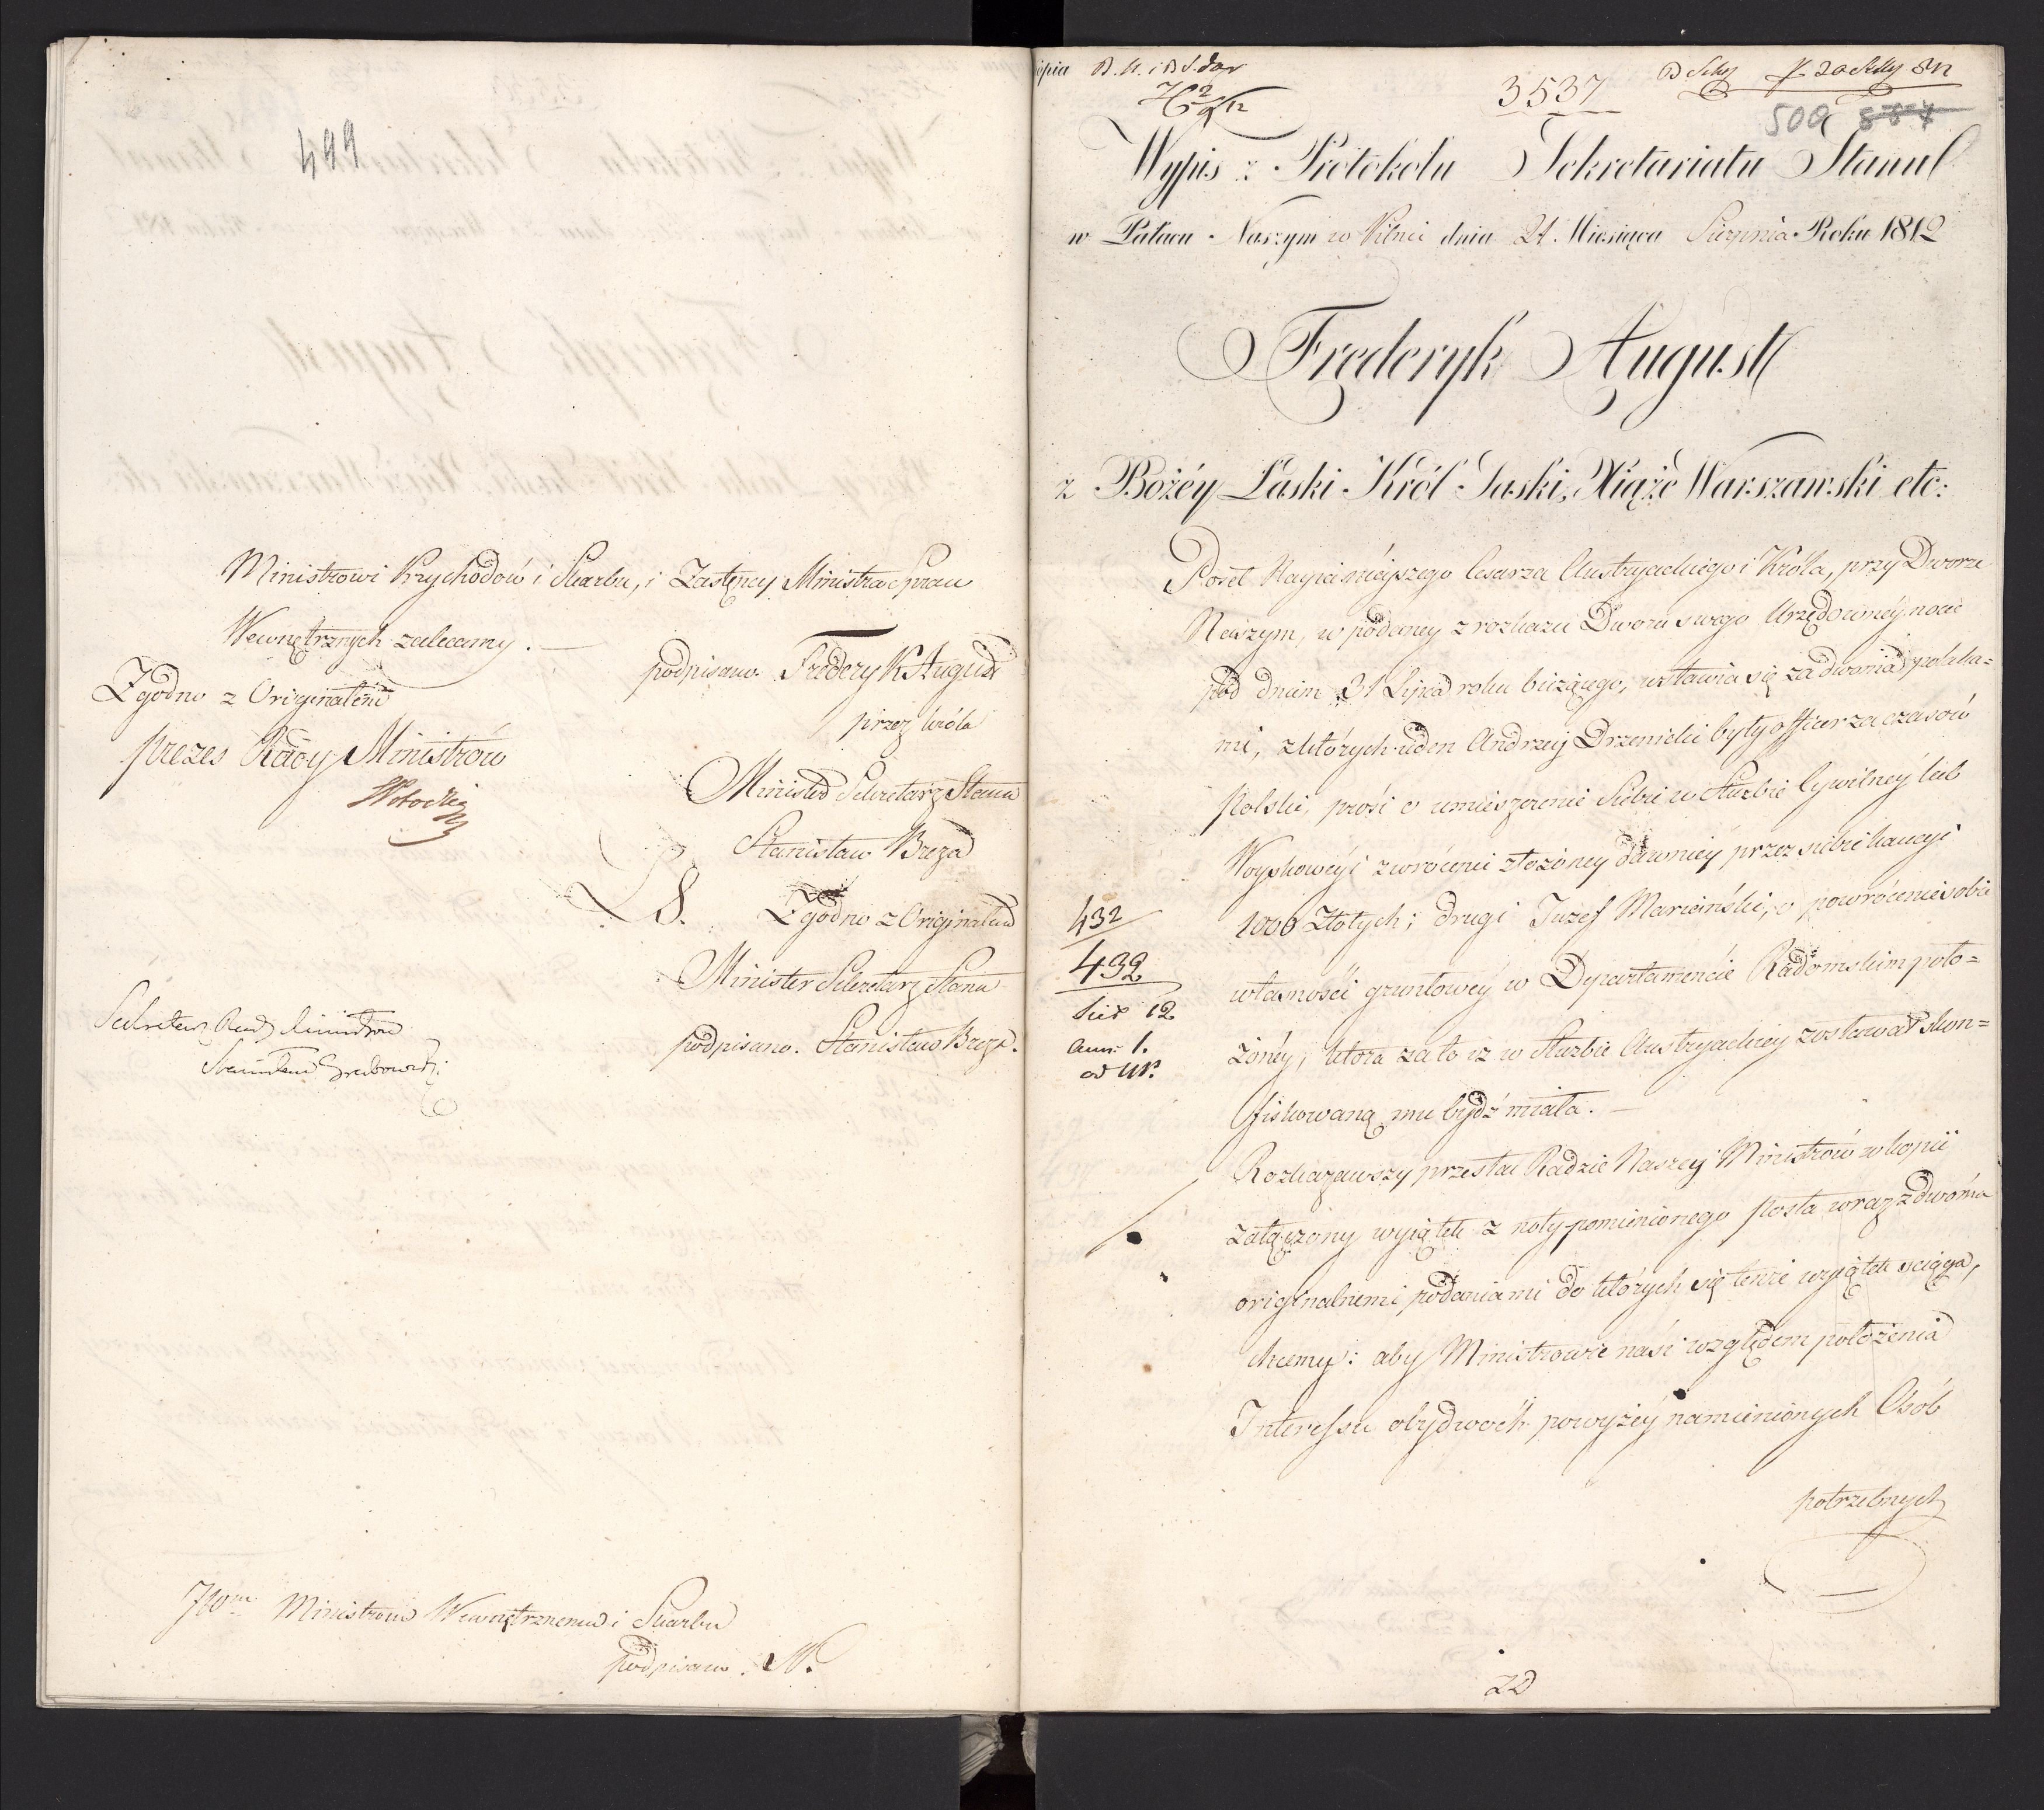 499
Ministrowi Przychodów i Skarbu, i Zastępcy Ministra Spraw
Wewnętrznych zalecamy. —
podpisano. Frederyk August
przez Króla
Minister Sekretarz Stanu
Stanisław Breza
LS.
Zgodno z Originałem
Minister Sekretarz Stanu
podpisano. Stanisław Breza.
Zgodno z Originałem
Prezes Rady Ministrów
Sekretarz Rady Ministrów
Stanisław Grabowski
JWm Ministrom Wewnętrznemu i Skarbu
podpisano. M.
3537
500 884
Wypis z Protokołu Sekretariatu Stanu
w Pałacu Naszym w Pilnic dnia 21. Miesiąca Sierpnia Roku 1812
Frederyk August
z Bożéy Łaski Król Saski, Xiążę Warszawski etc:
Poseł Nayiaśnieyszego Cesarza Austryackiego i Króla, przy Dworze
Naszym, w podaney z rozkazu Dworu swego Urzędowney nocie
pod dniem 31 Lipca roku bieżącego, wstawia się za dwoma Polaka=
mi, z których ieden Andrzey Drzenicki były officer za czasów
Polski, prosi o umieszczenie Siebie w Służbie Cywilney lub
Woyskowey i zwrócenie złożoney dawniey przez siebie kaucyi
1000 Złotych; drugi Juzef Marciński, o powrócenie sobie
własności gruntowey w Departamencie Radomskim poło=
żoney, która za to iż w Służbie Austryackiey zostawał skon=
fiskowaną mu bydź miała. —
Rozkazawszy przesłać Radzie Naszey Ministrów w kopii
załączony wyiątek z noty pomienionego Posła wraz z dwoma
originalnemi podaniami do których się tenże wyiątek ściąga,
chcemy: aby Ministrowie nasi względem położenia
Interessu obydwoch powyżey namienionych Osób
potrzebnych
432
432
12
1.